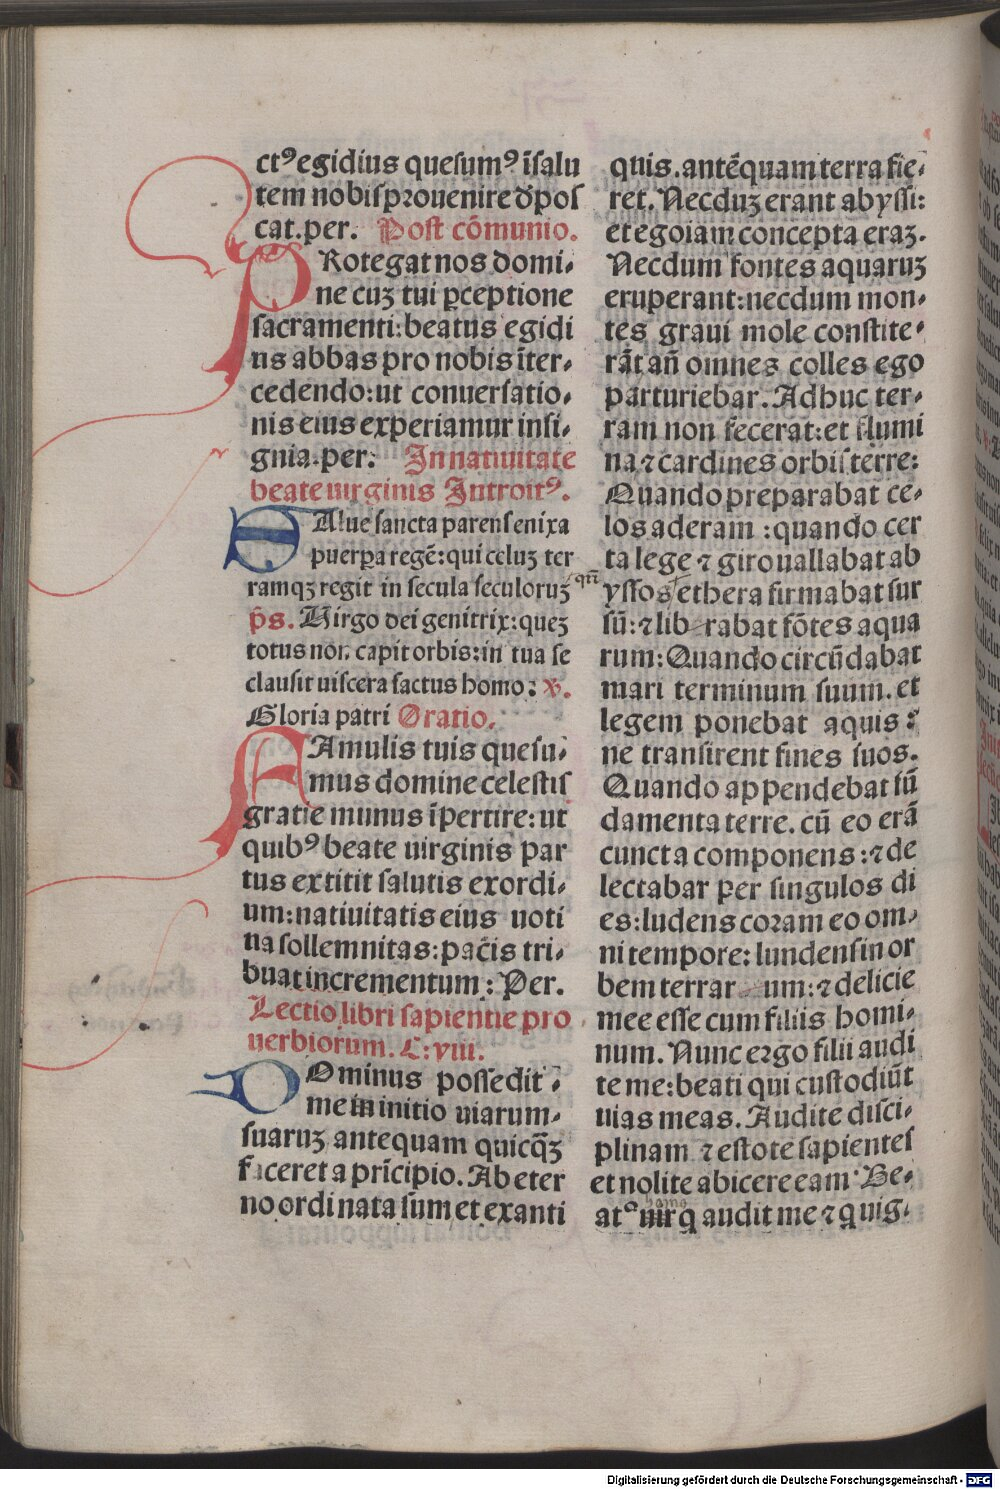 ctꝰ egidius quesumꝰ ĩsalu
tem nobis prouenire d̄pos
cat. per. Post cõmunio.
PRotegat nos domi-
ne cuꝫ tui ꝑceptione
sacramenti: beatus egidi
us abbas pro nobis ĩter-
cedendo: ut conuersatio-
nis eius experiamur insi-
gnia. per: In natiuitate
beate uirginis Introitꝰ.
SAlue sancta parens enixa
puerꝑa regẽ: qui celuꝫ ter
ramqꝫ regit in secula seculoruꝫ
p̃s. Uirgo dei genitrix: queꝫ
totus non capit orbis: in tua se
clausit uiscera factus homo: v.
Gloria patri Oratio.
FAmulis tuis quesu-
mus domine celestis
gratie munus ĩpertire: ut
quibꝰ beate uirginis par
tus extitit salutis exordi-
um: natiuitatis eius uoti
ua sollemnitas: pac̃is tri-
buat incrementum: Per.
Lectio libri sapientie pro
uerbiorum. C: viii.
DOminus possedit
me in initio uiarum
suaruꝫ antequam quicq̃ꝫ
faceret a prĩcipio. Ab eter
no ordinata sum et ex anti
quis. antẽquam terra fie-
ret. Necduꝫ erant abyssi:
et ego iam concepta eraꝫ.
Necdum fontes aquaruꝫ
eruperant: necdum mon-
tes graui mole constite-
rãt añ omnes colles ego
parturiebar. Adhuc ter-
ram non fecerat: et flumi
na ⁊ cardines orbis terre:
Quando preparabat ce-
los aderam: quando cer
ta lege ⁊ giro uallabat ab
qñ
yssos ethera firmabat sur
sũ: ⁊ librabat fõtes aqua
rum: Quando circũdabat
mari terminum suum. et
legem ponebat aquis:
ne transirent fines suos.
Quando appendebat fũ
damenta terre. cũ eo erã
cuncta componens: ⁊ de
lectabar per singulos di
es: ludens coram eo om-
ni tempore: lundens in or
bem terrarum: ⁊ delicie
mee esse cum filiis homi-
num. Nunc ergo filii audi
te me: beati qui custodiũt
uias meas. Audite disci-
plinam ⁊ estote sapientes
et nolite abicere eam. Be-
homo
atꝰ uir q̇ audit me ⁊ q uig-
Digitalisierung gefördert durch die Deutsche Forschungsgemeinschaft - DFG